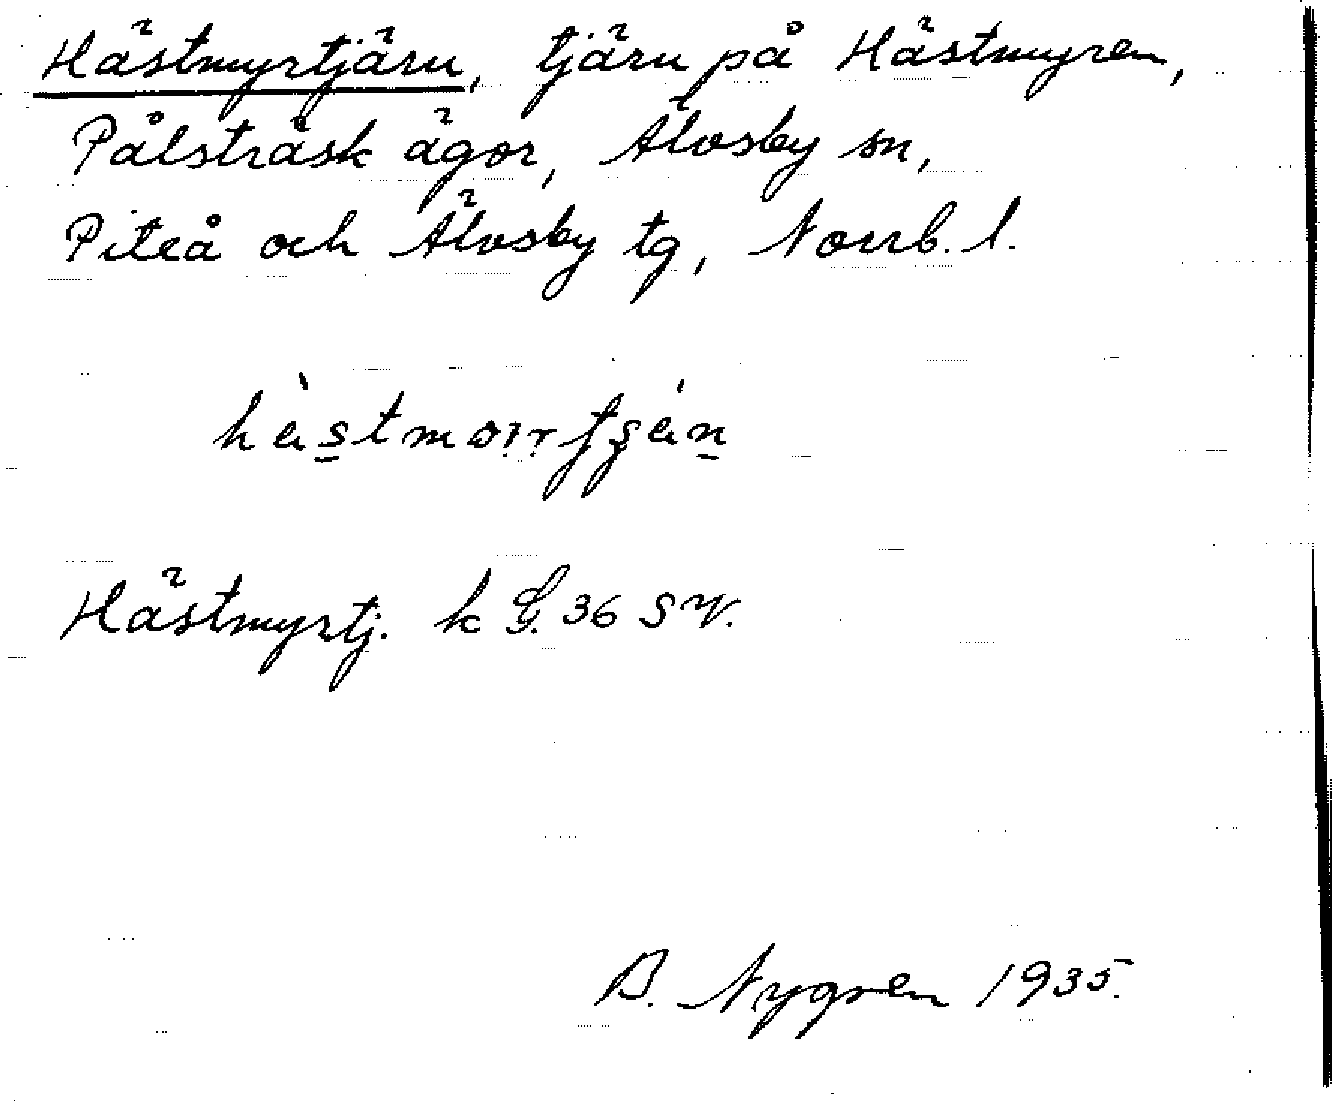 Hästmyrtjärn, tjärn på Hästmyren,
Pålsträsk ägor, Älvsby sn,
Piteå och Älvsby tg, Norrb. l.
Hästmyrtj. k G. 36 SV.
B. Nygren 1935.